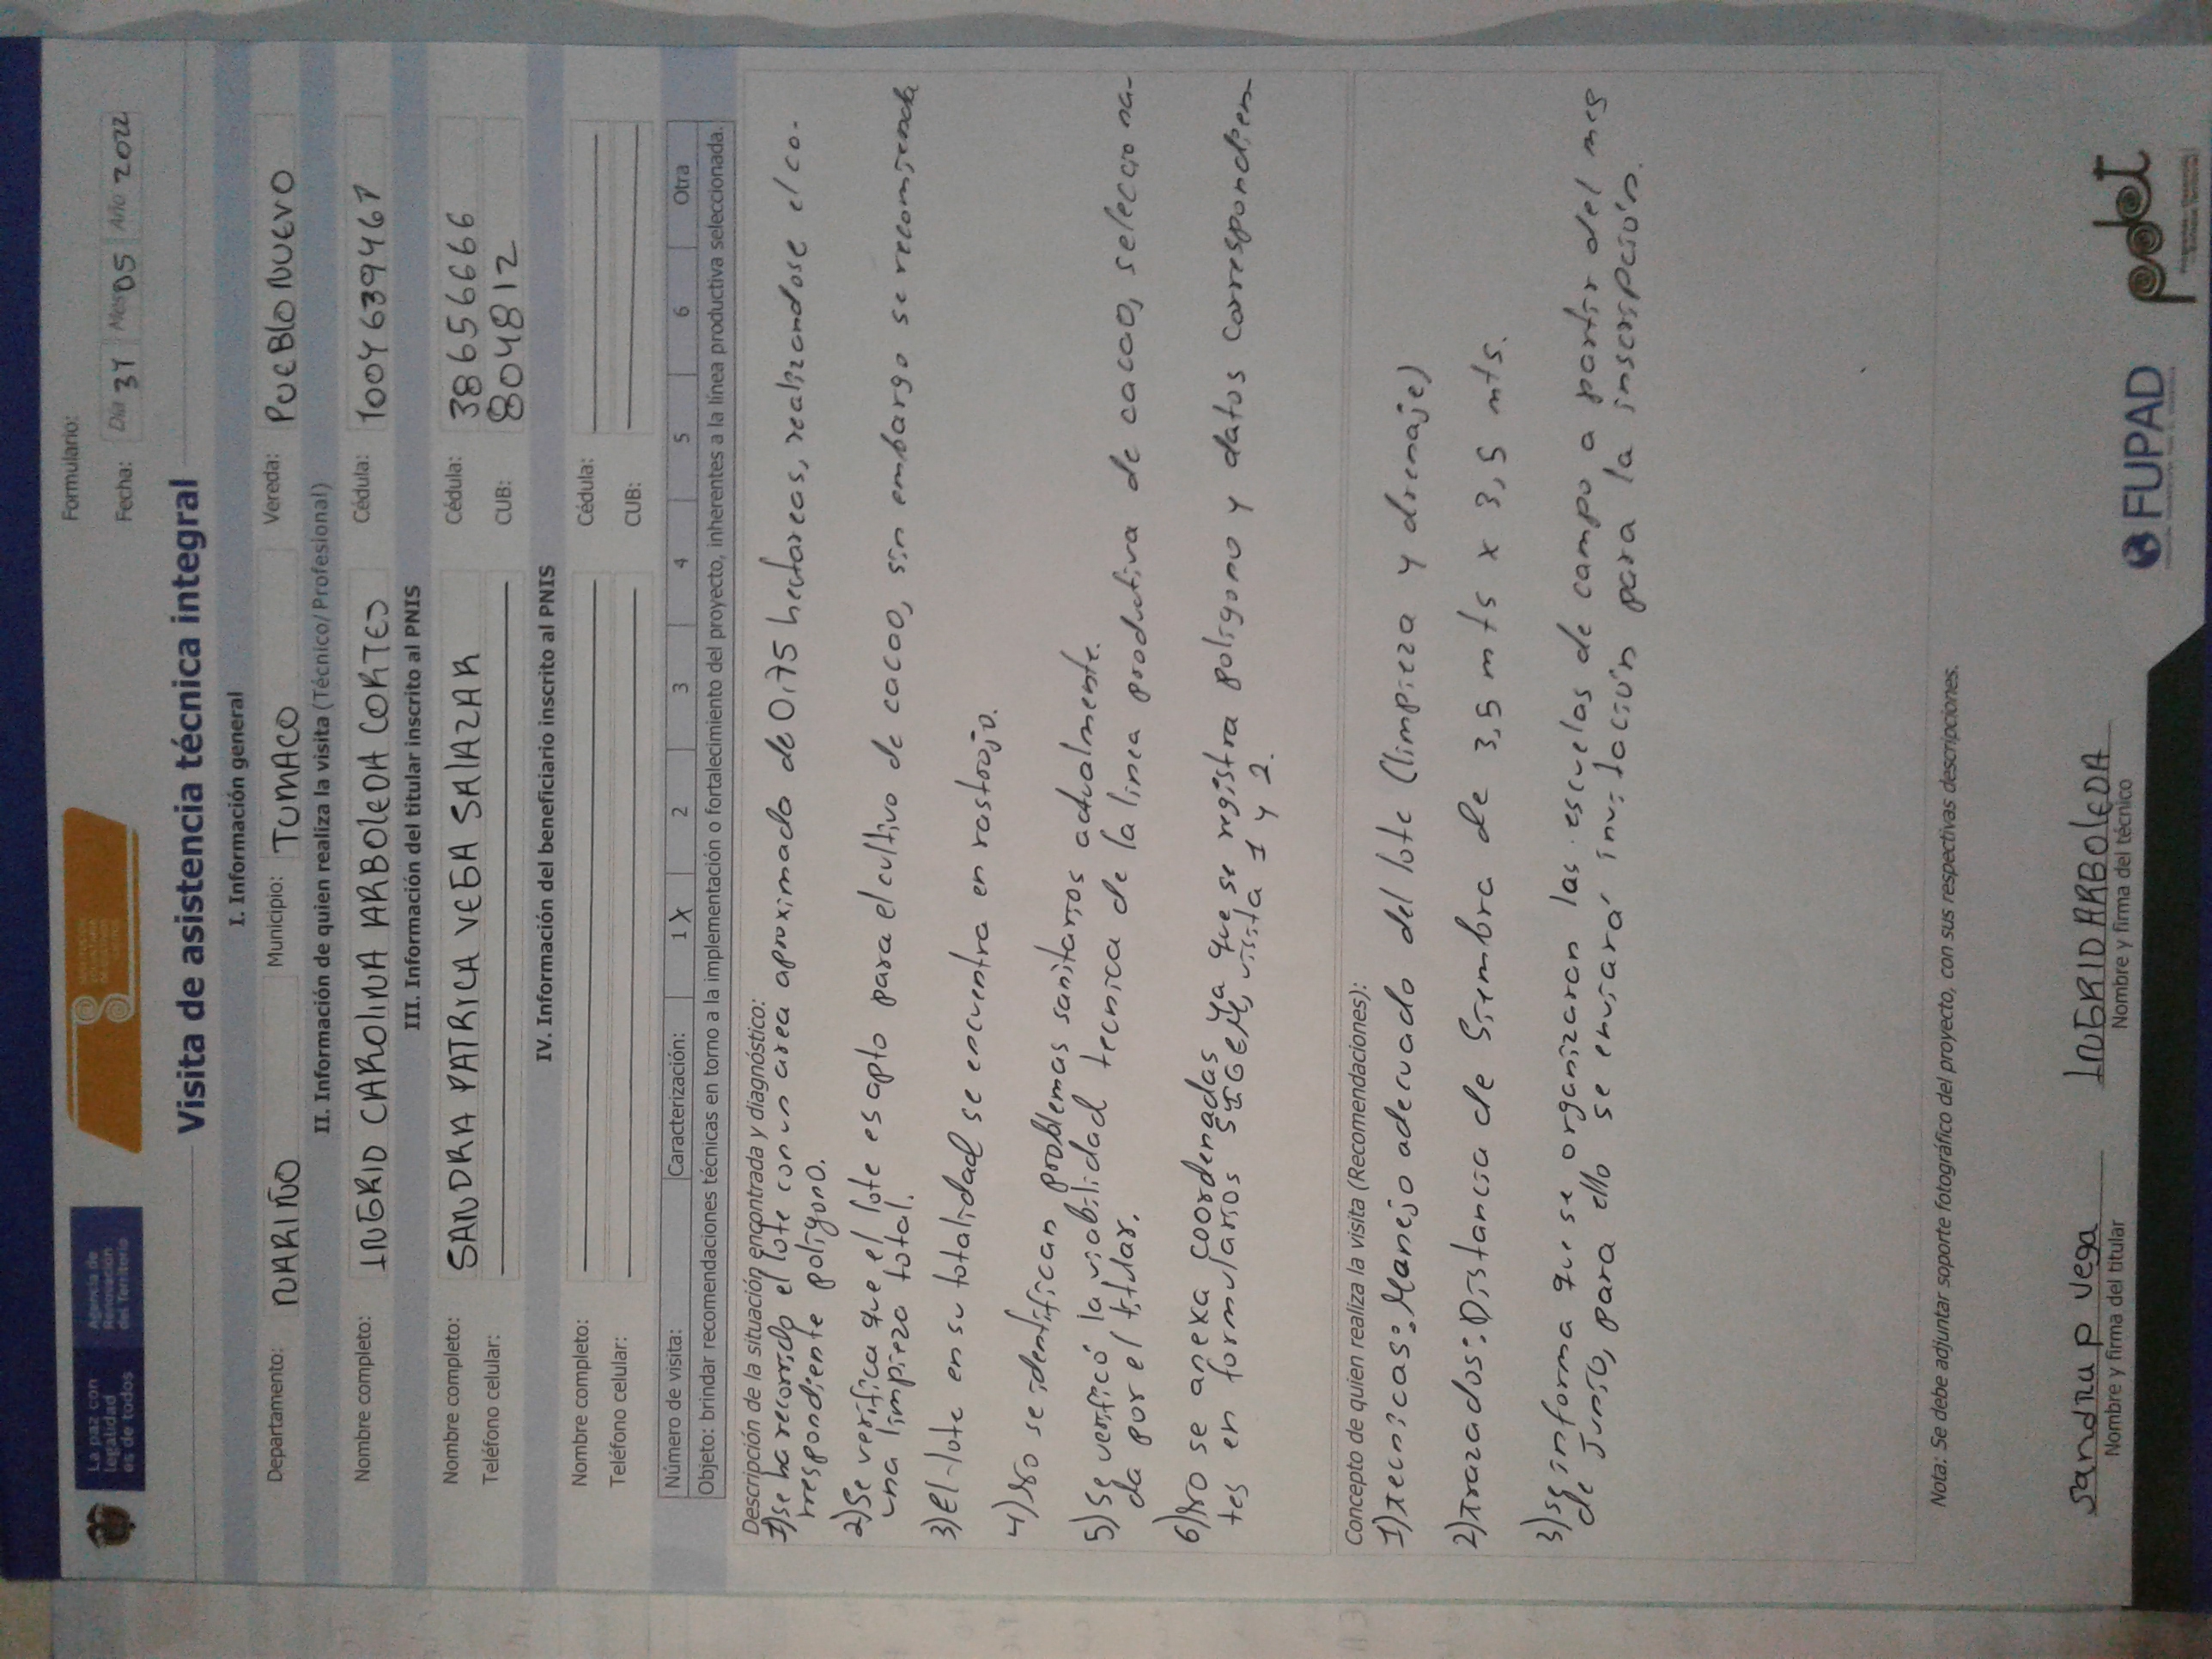 La paz con
legalidad
es de todos
Agencia de
Renovación
del Territorio
Formulario:
Fecha: Día 31 Mes 05 Año 2022
Visita de asistencia técnica integral
I. Información general
Departamento: NARIÑO Municipio: TUMACO Vereda: PUEBLO NUEVO
II. Información de quien realiza la visita (Técnico/ Profesional)
Nombre completo: INGRID CAROLINA ARBOLEDA CORTES Cédula: 1004639461
III. Información del titular inscrito al PNIS
Nombre completo: SANDRA PATRICA VEGA SALAZAR Cédula: 38656666
Teléfono celular: CUB: 804812
IV. Información del beneficiario inscrito al PNIS
Nombre completo: Cédula:
Teléfono celular: CUB:
Número de visita: Caracterización: 1 X 2 3 4 5 6 Otra
Objeto: brindar recomendaciones técnicas en torno a la implementación o fortalecimiento del proyecto, inherentes a la línea productiva seleccionada.
Descripción de la situación encontrada y diagnóstico:
1) se ha recorrido el lote con un area aproximado de 0,75 hectareas, realizandose el co-
rrespondiente poligono.
2) Se verifica que el lote es apto para el cultivo de cacao, sin embargo se recomienda
una limpieza total.
3) El lote en su totalidad se encuentra en rastrojo.
4) No se identifican problemas sanitarios actualmente.
5) Se verificó la viabilidad tecnica de la linea productiva de cacao, seleccio na-
da por el titular.
6) No se anexa coordenadas ya que se registra poligono y datos correspondien
tes en formularios SIGEM, visita 1 y 2.
Concepto de quien realiza la visita (Recomendaciones):
1) Tecnicas: Manejo adecuado del lote (limpieza y drenaje)
2) Trazados: Distancia de Siembra de 3,5 mts x 3,5 mts.
3) se informa que se organizaran las escuelas de campo a partir del mes
de Junio, para ello se enviará invitación para la inscripción.
Nota: Se debe adjuntar soporte fotográfico del proyecto, con sus respectivas descripciones.
Sandra P Vega
Nombre y firma del titular
INGRID ARBOLEDA
Nombre y firma del técnico
FUPAD
pdet